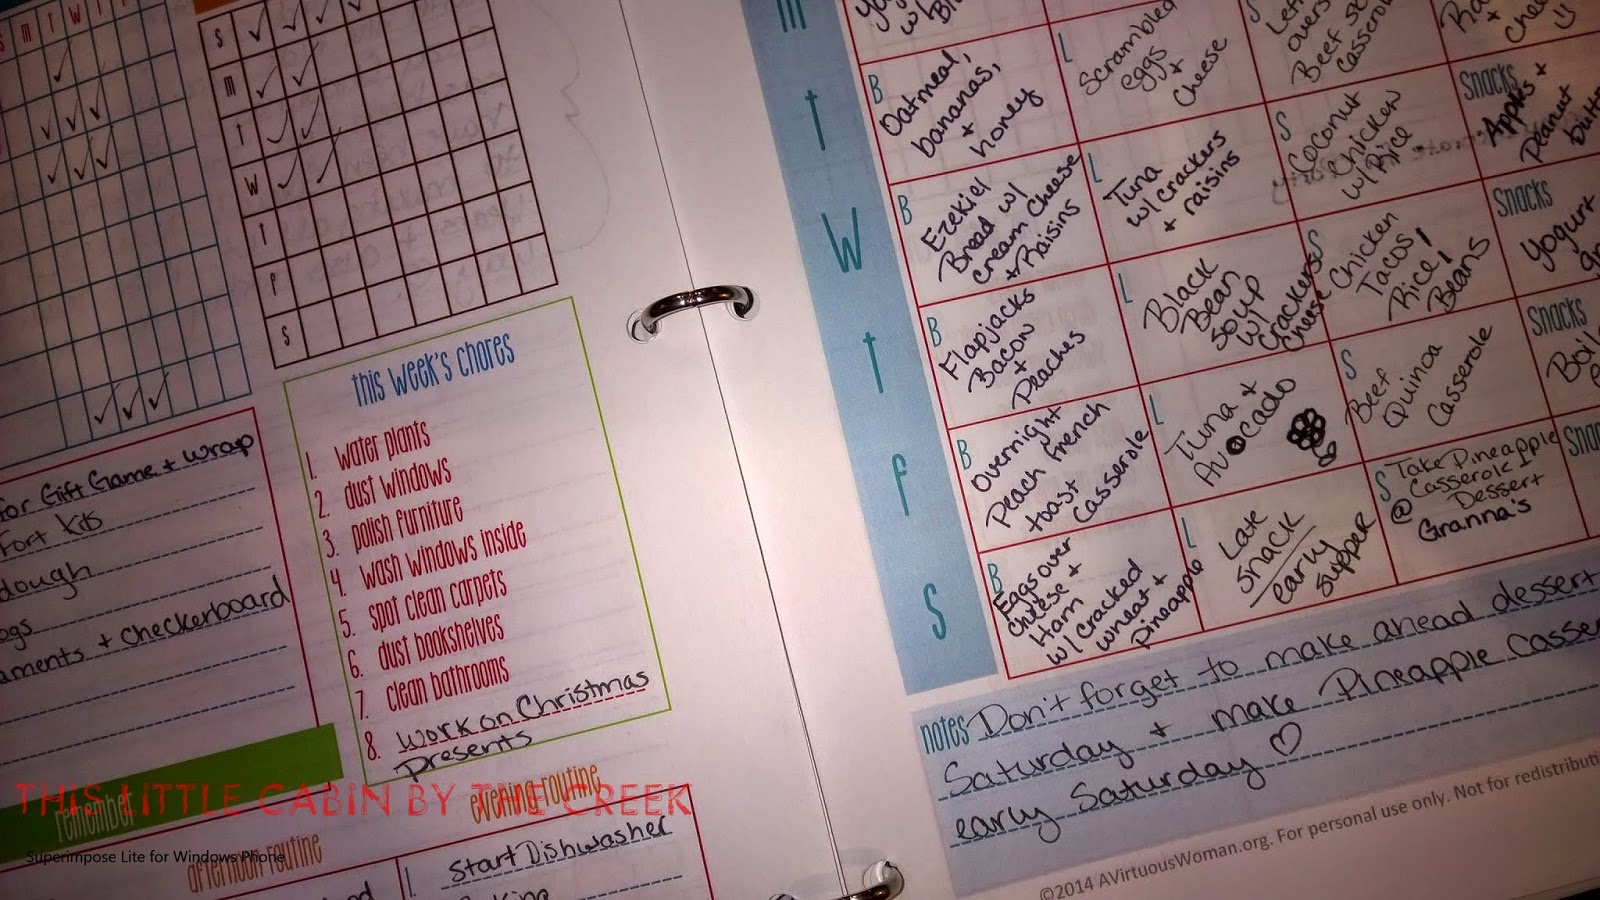 s m t w t f
s
m
t
w
t
f
s
for Gift Game + wrap
Fort Kits
dough
aments + checkerboard
this week's chores
1. water plants
2. dust windows
3. polish furniture
4. wash windows inside
5. spot clean carpets
6. dust bookshelves
7. clean bathrooms
8. work on Christmas
presents
remember
afternoon routine
evening routine
1. Start Dishwasher
THIS LITTLE CABIN BY THE CREEK
Superimpose Lite for Windows Phone
m
t
w
t
f
s
B
Oatmeal,
bananas,
+
honey
L
Scrambled
eggs
+
cheese
S
Left
overs
Beef
Casserole
B
Ezekiel
Bread w/
cream cheese
+ Raisins
L
Tuna
w/ crackers
+ raisins
S
Coconut
Chicken
w/ Rice
Snacks
Apples +
Peanut
butt
B
Flapjacks
Bacon
+
Peaches
L
Black
Bean
Soup
w/
crackers
cheese
S
Chicken
Tacos/
Rice/
Beans
Snacks
Yogurt
B
Overnight
Peach French
toast
Casserole
L
Tuna +
Avocado
S
Beef
Quinoa
Casserole
Snacks
B
Eggs over
cheese +
Ham
w/ cracked
wheat +
pineapple
L
Late
snack
early
supper
S
Take Pineapple
Casserole +
Dessert
@ Granna's
Sna
notes Don't forget to make ahead dessert
Saturday + make Pineapple Casser
early Saturday ♡
©2014 AVirtuousWoman.org. For personal use only. Not for redistributi